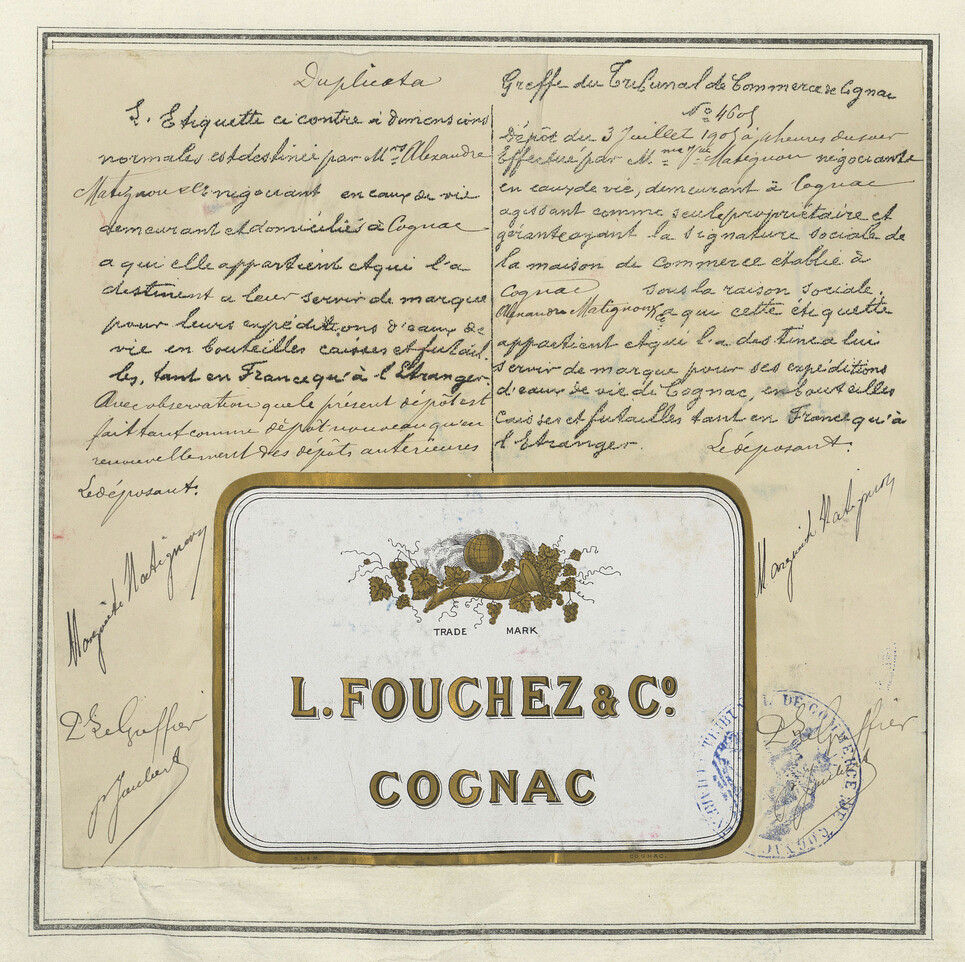 Duplicata
L'Etiquette ci contre à dimensions
normales est destinée par Mrs Alexandre
Matignon & Cie négociant en eaux de vie
demeurant et domiciliés à Cognac
a qui elle appartient et qui l'a
destinent a leur servir de marque
pour leurs expéditions d'eaux de
vie en bouteilles caisses et futail-
les, tant en France qu'à l'Etranger.
Avec observation que le présent dépôt est
fait tant comme dépôt nouveau qu'en
renouvellement des dépôts antérieures
Le déposant.
Marguerite Matignon
P. Le Greffier
Joubert
Greffe du Tribunal de Commerce de Cognac
No 4605
Dépôt du 3 Juillet 1905 à heures du soir
Effectué par Mme Vve Matignon négociante
en eaux de vie, demeurant à Cognac
agissant comme seule propriétaire et
gérante ayant la signature sociale de
la maison de commerce établie à
Cognac sous la raison sociale.
Alexandre Matignon & Cie a qui cette étiquette
appartient et qui l'a destinée a lui
servir de marque pour ses expéditions
d'eaux de vie de Cognac, en bouteilles
caisses et futailles tant en France qu'à
l'Etranger. Le déposant.
Marguerite Matignon
P. Le Greffier
Joubert
TRADE MARK
L. FOUCHEZ & Co.
COGNAC
TRIBUNAL DE COMMERCE DE COGNAC
COGNAC.